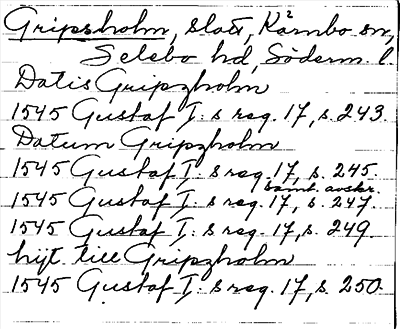 Gripsholm, slott, Kärnbo sn,
Selebo hd, Söderm. l.
Datis Gripzholm
1545 Gustaf I: s reg. 17, s. 243.
Datum Gripzholm
1545 Gustaf I: s reg. 17, s. 245.
samt. avskr.
1545 Gustaf I: s reg. 17, s. 247.
1545 Gustaf I: s reg. 17, s. 249.
hijt till Gripzholm
1545 Gustaf I: s reg. 17, s. 250.